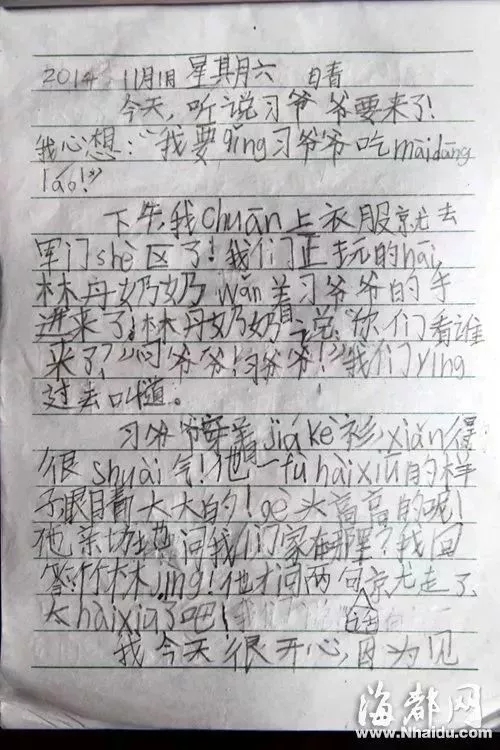 2014 11月1日 星期六 晴
今天，听说习爷爷要来了！
我心想：“我要qǐng习爷爷吃màidāng
láo！”
下午，我chuān上衣服就去
军门shè区了！我们正玩的hāi，
林丹奶奶wǎn着习爷爷的手
进来了，林丹奶奶说“你们看谁
来了？”“习爷爷！习爷爷！”我们yíng
过去叫道。
习爷爷穿着jiákè衫，xiǎn得
很shuài气！他一fù hàixiū的样
子眼睛大大的！gè头高高的呢！
他亲切地问我们家在哪里？我回
答：竹林jìng！他才问两句就走了
太hàixiū了吧！
我今天很开心，因为见
海都网
www.Nhaidu.com